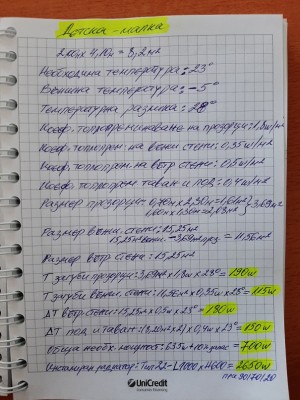 Детска - малка
2м х 4,10м = 8,2м2
Необходима температура: 23°
Външна температура: -5°
Температурна разлика: 28°
Коеф. топлопреминаване на прозорци: 1,8w/м2
Коеф. топлопрен. на външни стени: 0,35w/м2
Коеф. топлопрен. на вътр стени: 0,5w/м2
Коеф. топлопрен таван и под: 0,4w/м2
Размер прозорци: 0,70м х 2,30м = 1,61м2
1,60м х 1,30м = 2,08м2 } 3,69м2
Размер външ. стени: 15,25м2
15,25м2 - 3,69м2 = 11,56м2
Размер вътр стени: 15,25м2
Т загуби прозорци: 3,69м2 х 1,8w х 28° = 190w
Т загуби външ. стени: 11,56м2 х 0,35w х 28° = 115w
ΔТ вътр стени: 15,25м2 х 0,5w х 23° = 180w
ΔТ под и таван: (8,20м2 х 2) х 0,4w х 23° = 150w
Обща необх. мощност: 635w + 10% = 700w
радиатор: Тип 22 - L1000 х H600 = 2650w
при 90/70/20
UniCredit